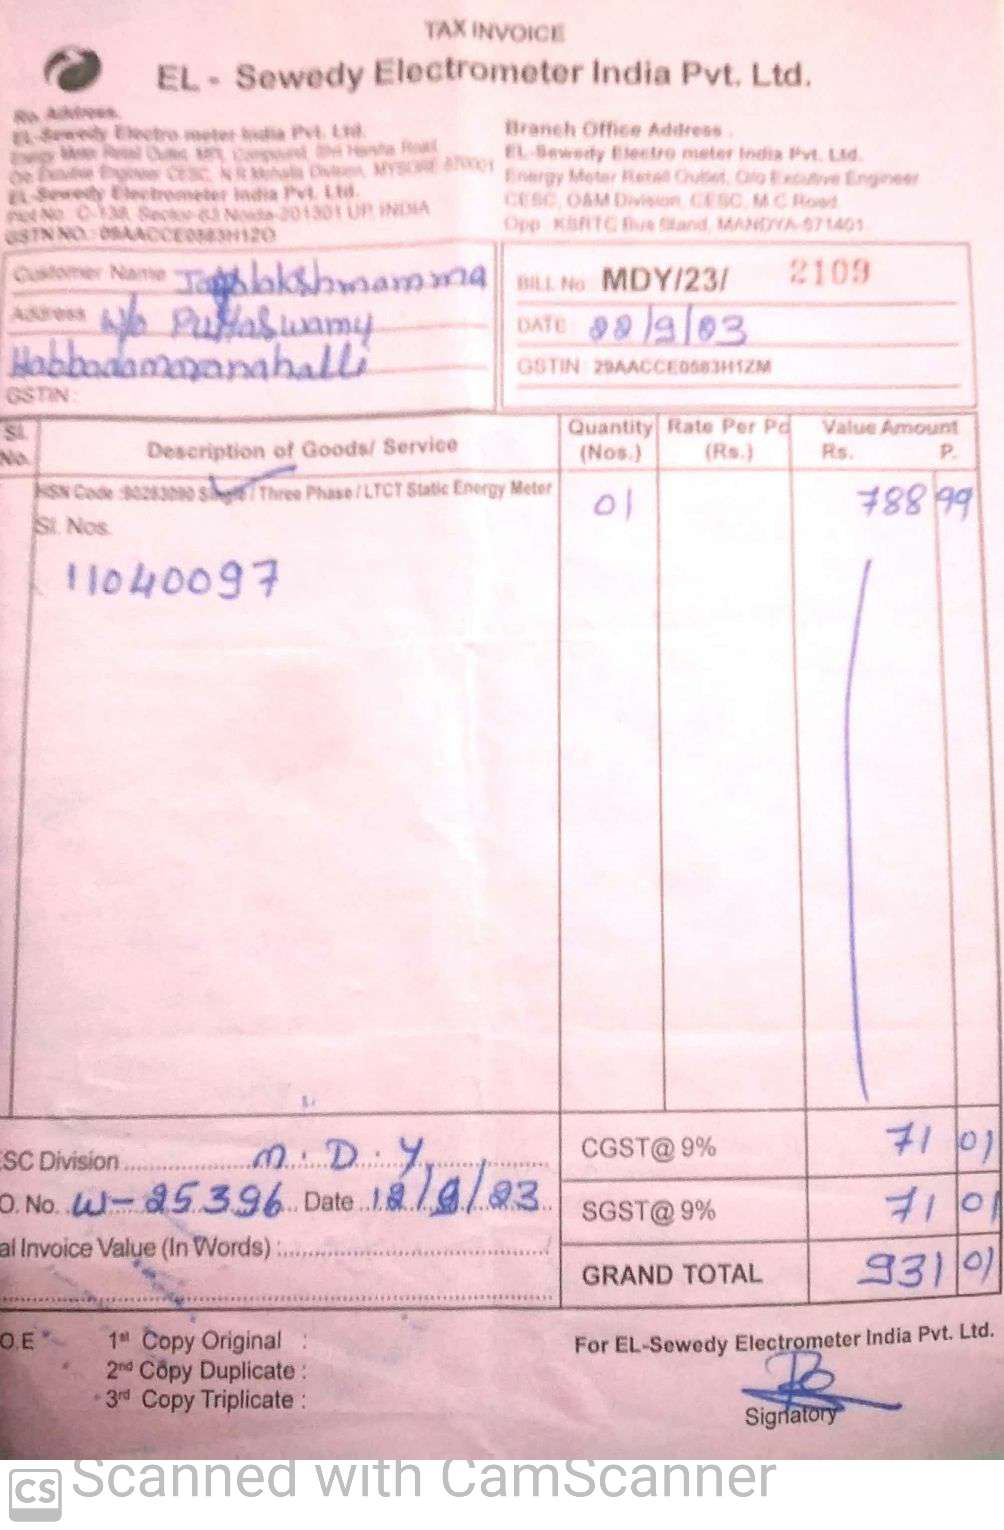 TAX INVOICE
EL - Sewedy Electrometer India Pvt. Ltd.
Ro. Address.
EL-Sewedy Electro meter India Pvt. Ltd.
Energy Meter Retail Outlet, Compound, Road
Opp. Executive Engineer CESC, N R Mohalla Division, MYSORE-570001
EL-Sewedy Electrometer India Pvt. Ltd.
Plot No. C-138, Sector-63 Noida-201301 UP. INDIA
GSTN NO. : 09AACCE0583H1ZO
Branch Office Address .
EL-Sewedy Electro meter India Pvt. Ltd.
Energy Meter Retail Outlet, O/o Excutive Engineer
CESC, O&M Division, CESC, M.C Road
Opp. KSRTC Bus Stand, MANDYA-571401
Customer Name
Address W/o Puttaswamy
GSTIN :
BILL No MDY/23/ 2109
DATE
GSTIN 29AACCE0583H1ZM
Sl. No. Description of Goods/ Service Quantity (Nos.) Rate Per Pc (Rs.) Value Amount Rs. P.
HSN Code :90283090 Single / Three Phase / LTCT Static Energy Meter 01 788 99
Sl. Nos.
11040097
SC Division M.D.Y. CGST@ 9% 71 01
O. No. W-25396 Date 12/9/23 SGST@ 9% 71 01
al Invoice Value (In Words) :
GRAND TOTAL 931 01
O.E 1st Copy Original :
2nd Copy Duplicate :
3rd Copy Triplicate :
For EL-Sewedy Electrometer India Pvt. Ltd.
Signatory
CS Scanned with CamScanner